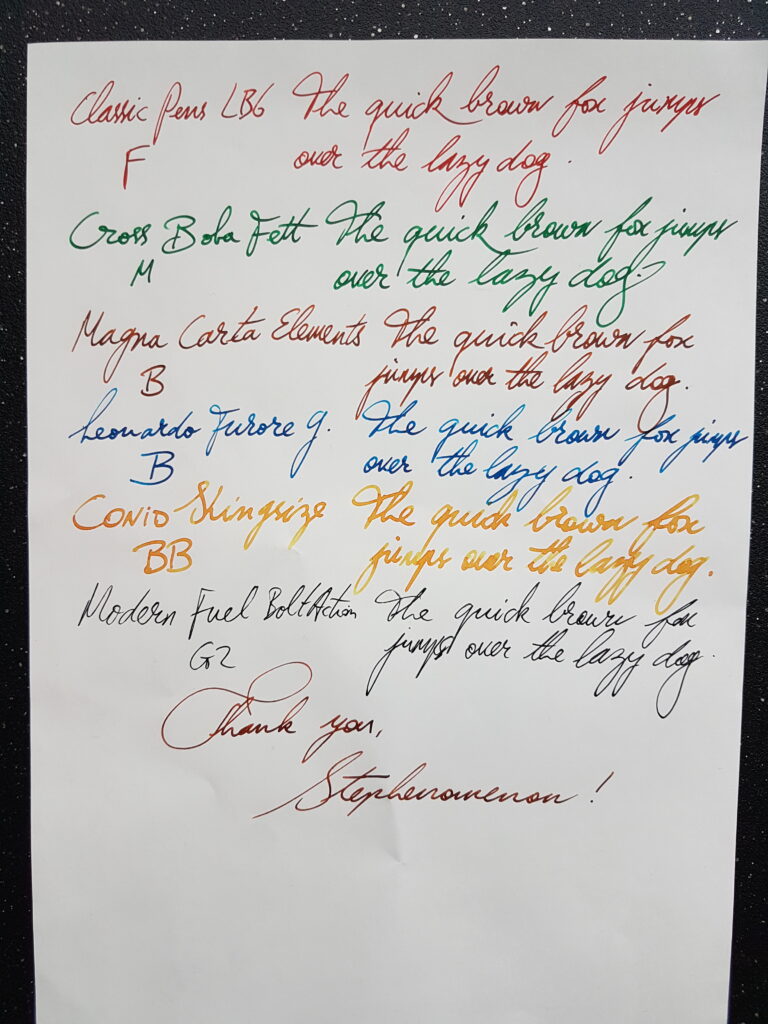 Classic Pens LB6 The quick brown fox jumps
F over the lazy dog.
Cross Boba Fett The quick brown fox jumps
M over the lazy dog.
Magna Carta Elements The quick brown fox
B jumps over the lazy dog.
Leonardo Furore G. The quick brown fox jumps
B over the lazy dog.
Conid Slingsize The quick brown fox
BB jumps over the lazy dog.
Modern Fuel Bolt Action The quick brown fox
G2 jumps over the lazy dog.
Thank you,
Stephenomenon!